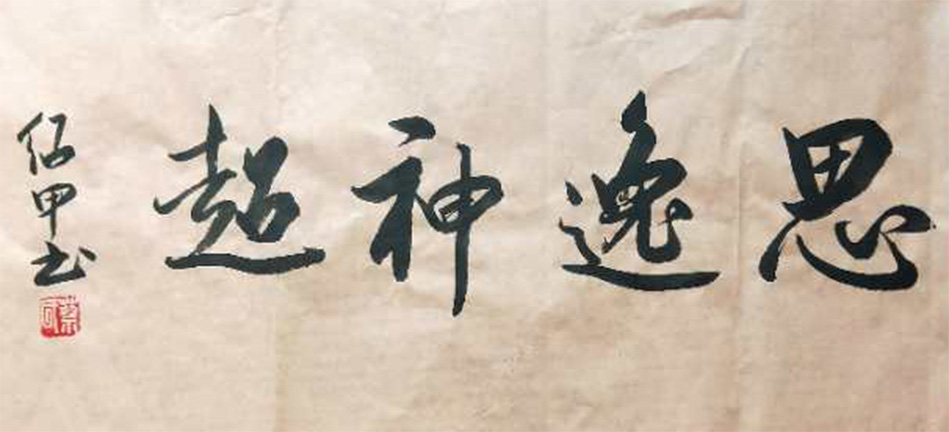 思逸神超
绍甲书